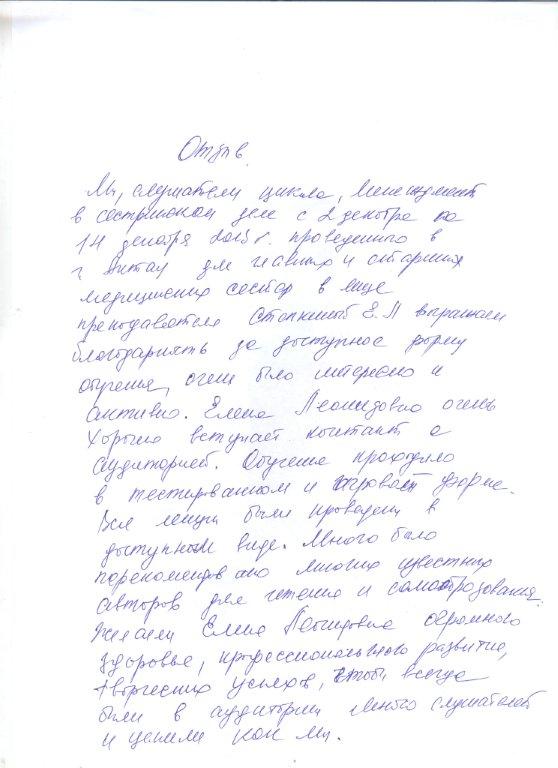 Отзыв.
Мы, слушатели цикла, Менеджмент
в сестринском деле с 2 декабря по
14 декабря 2015 г. проведенного в
г для главных и старших
медицинских сестер в лице
преподавателя Е.Л выражаем
благодарность за доступную форму
обучения, очень было интересно и
активно. Елена Леонидовна очень
хорошо вступает контакт с
аудиторией. Обучение проходило
в тестированном и игровой форме.
Все лекции были проведены в
доступном виде. Много было
порекомендовано многих известных
авторов для чтения и самообразования.
Желаем Елене Леонидовне огромного
здоровье, профессионального развития,
творческих успехов, чтобы всегда
были в аудитории много слушателей
и ценили как мы.